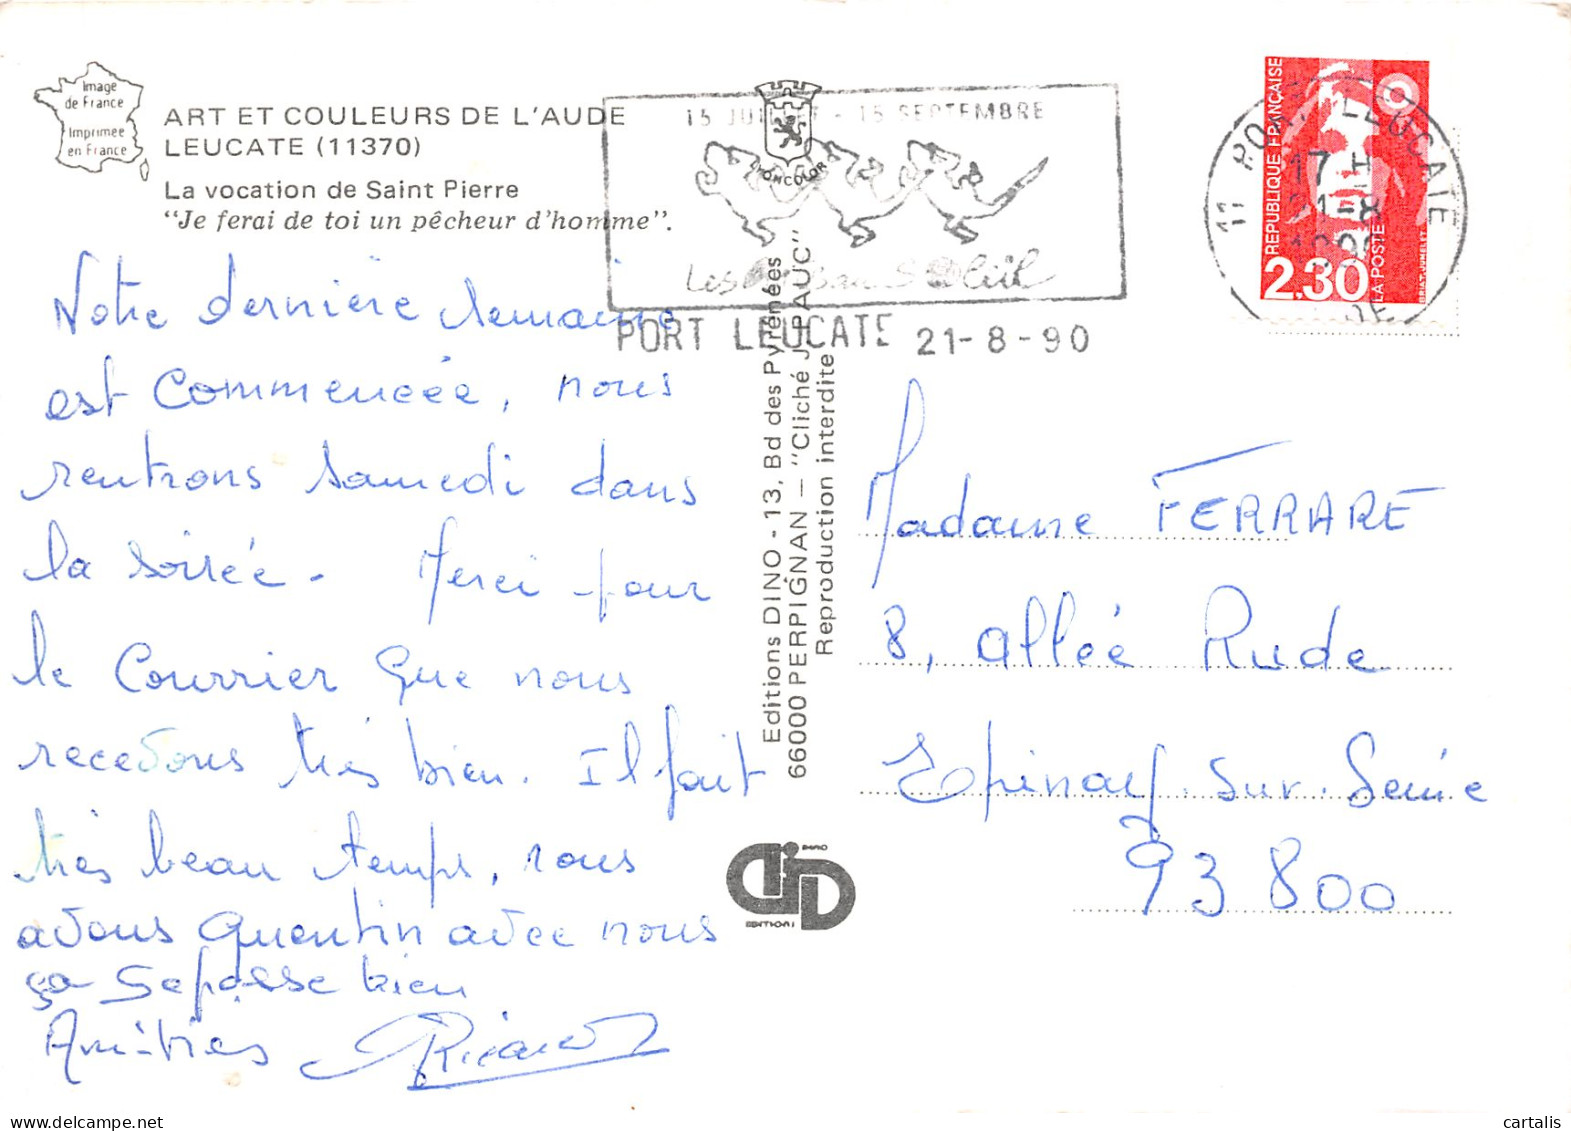 Image
de France
Imprimée
en France
ART ET COULEURS DE L'AUDE
LEUCATE (11370)
La vocation de Saint Pierre
"Je ferai de toi un pêcheur d'homme".
Notre dernière semaine
est commencée, nous
rentrons samedi dans
la soirée. Merci pour
le courrier que nous
recevons très bien. Il fait
très beau temps, nous
avons Quentin avec nous
ça se passe bien
Amitiés
15 JUILLET - 15 SEPTEMBRE
PORT LEUCATE 21-8-90
LYONCOLOR
Editions DINO - 13, Bd des Pyrénées
66000 PERPIGNAN — "Cliché J. PAUC"
Reproduction interdite
DINO
EDITIONS
RÉPUBLIQUE FRANÇAISE
2,30
LA POSTE
BRIAT-JUMELET
11 PORT LEUCATE
17 H
21-8
1990
AUDE
Madame FERRARE
8, allée Rude
Epinay-sur-Seine
93 800
cartalis